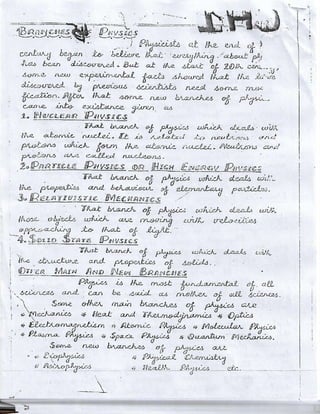 CH#1
BRANCHES OF PHYSICS
Physicists at the end of
century began to believe that everything about ph
has been discovered. But at the start of 20th cen
some new experimental facts showed that the
discovered by previous scientists need some mo
fication. After that some new branches of physi
came into existance given as
1. NUCLEAR PHYSICS
That branch of physics which deals with
the atomic nuclei. It is related to neutrons and
protons which form the atomic nuclei. Neutrons and
protons are called nucleons.
2. PARTICLE PHYSICS OR HIGH ENERGY PHYSICS
That branch of physics which deals with
the properties and behaviour of elementary particles.
3. RELATIVISTIC MECHANICS
That branch of physics which deals with
those objects which are moving with velocities
approaching to that of light.
4. SOLID STATE PHYSICS
That branch of physics which deals with
the structure and properties of solids.
OTHER MAIN AND NEW BRANCHES
Physics is the most fundamental of all
sciences and can be said as mother of all sciences.
Some other main branches of physics are
* Mechanics * Heat and Thermodynamics * Optics
* Electromagnetism * Atomic Physics * Molecular Physics
* Plasma Physics * Space Physics * Quantum Mechanics.
Some new branches of physics are
* Biophysics * Physical Chemistry
* Astrophysics * Health Physics etc.